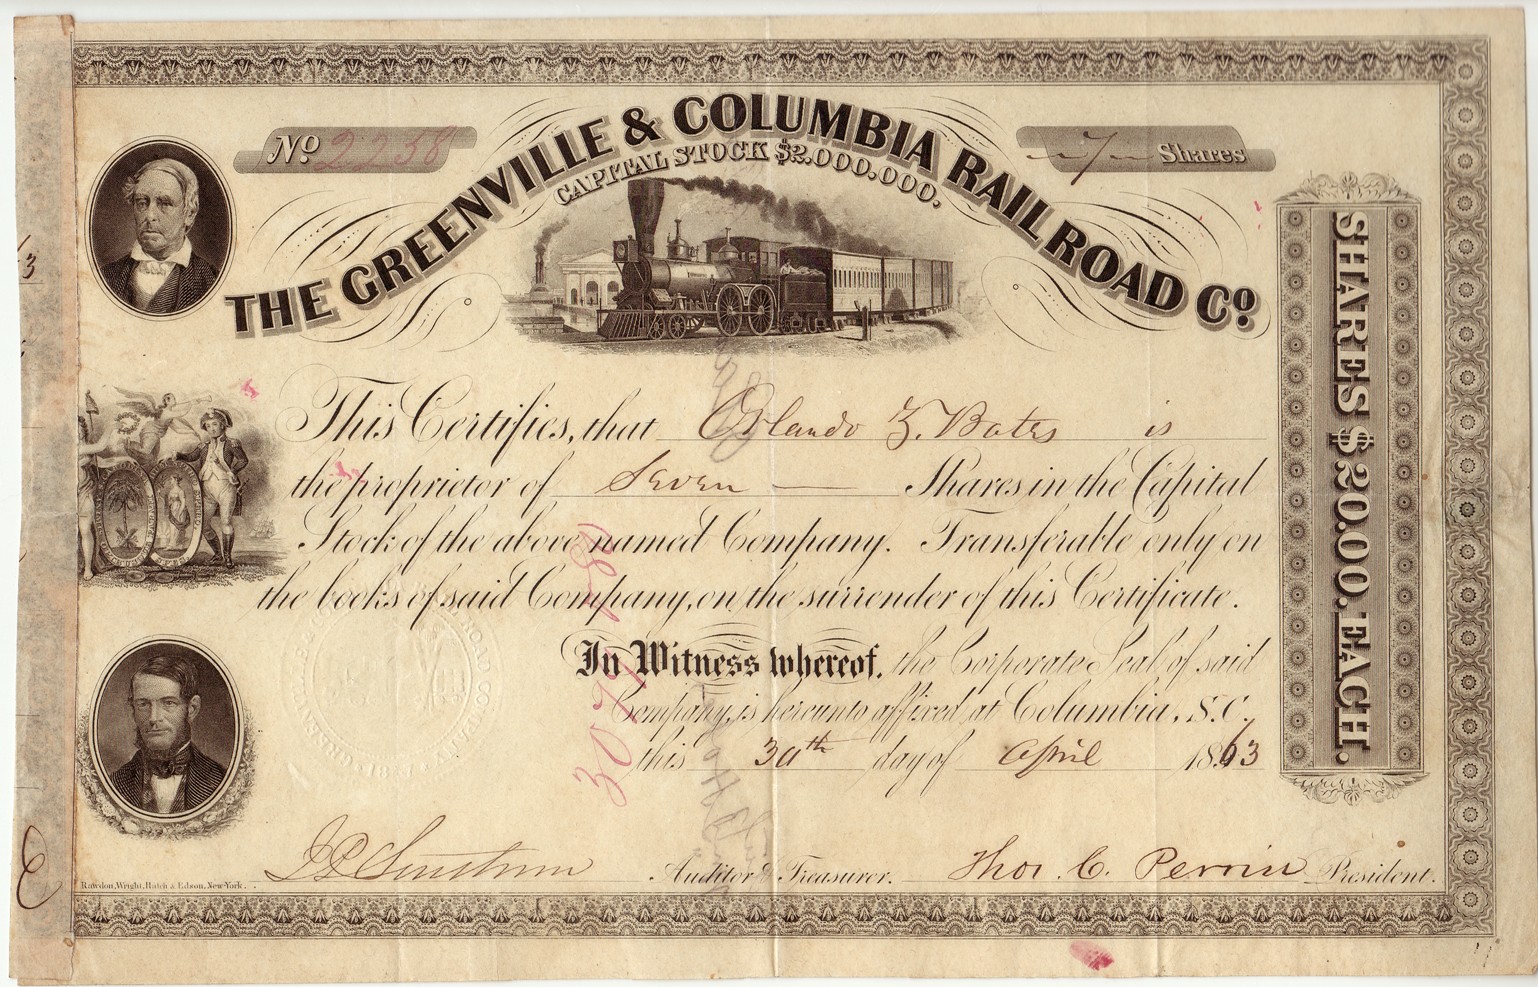 No 2258
THE GREENVILLE & COLUMBIA RAIL ROAD Co.
7 Shares
CAPITAL STOCK $2.000.000.
SHARES $20.00. EACH.
This Certifies, that Orlando Z. Bates is
the proprietor of Seven Shares in the Capital
Stock of the above named Company. Transferable only on
the books of said Company, on the surrender of this Certificate.
In Witness whereof, the Corporate Seal of said
Company, is hereunto affixed at Columbia, S.C.
this 30th day of April 1863
Auditor & Treasurer. Thos. C. Perrin President.
Rawdon, Wright, Hatch & Edson, New-York.